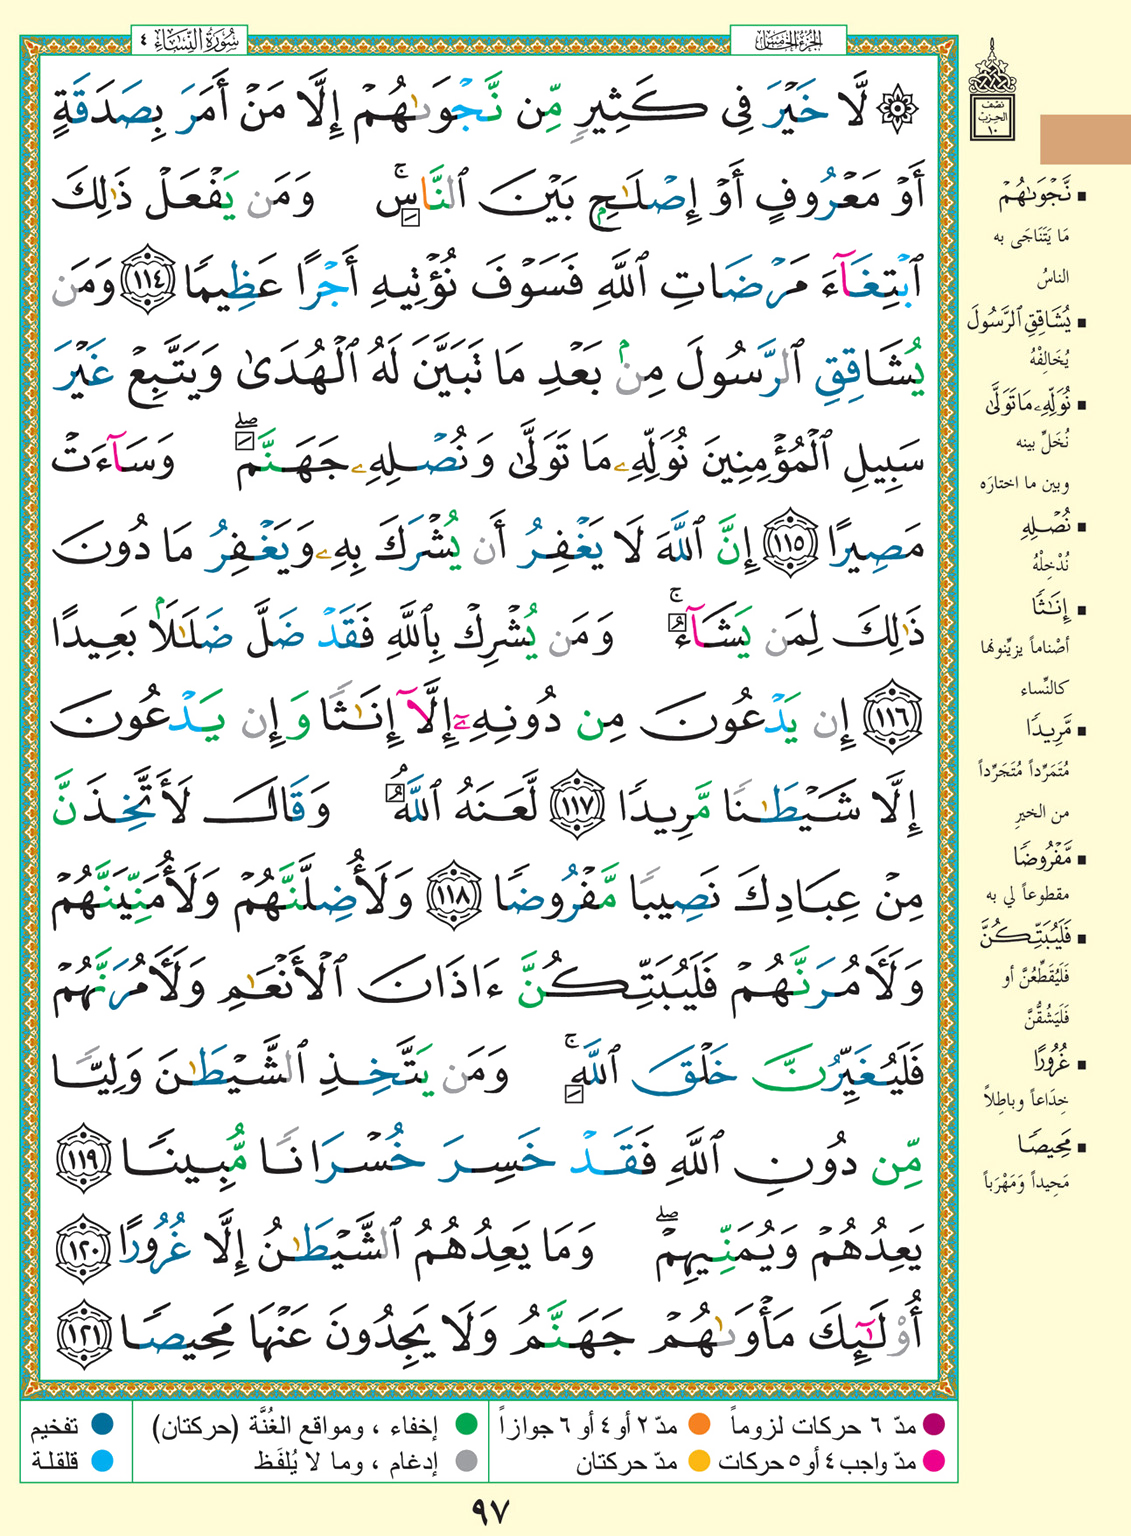 سُورَةُ النِّسَاءِ ٤
الجُزءُ الخَامِسُ
نصف
الحزب
١٠
۞ لَّا خَيْرَ فِى كَثِيرٍ مِّن نَّجْوَىٰهُمْ إِلَّا مَنْ أَمَرَ بِصَدَقَةٍ
أَوْ مَعْرُوفٍ أَوْ إِصْلَٰحٍۭ بَيْنَ ٱلنَّاسِۚ وَمَن يَفْعَلْ ذَٰلِكَ
ٱبْتِغَآءَ مَرْضَاتِ ٱللَّهِ فَسَوْفَ نُؤْتِيهِ أَجْرًا عَظِيمًا ١١٤ وَمَن
يُشَاقِقِ ٱلرَّسُولَ مِنۢ بَعْدِ مَا تَبَيَّنَ لَهُ ٱلْهُدَىٰ وَيَتَّبِعْ غَيْرَ
سَبِيلِ ٱلْمُؤْمِنِينَ نُوَلِّهِۦ مَا تَوَلَّىٰ وَنُصْلِهِۦ جَهَنَّمَۖ وَسَآءَتْ
مَصِيرًا ١١٥ إِنَّ ٱللَّهَ لَا يَغْفِرُ أَن يُشْرَكَ بِهِۦ وَيَغْفِرُ مَا دُونَ
ذَٰلِكَ لِمَن يَشَآءُۚ وَمَن يُشْرِكْ بِٱللَّهِ فَقَدْ ضَلَّ ضَلَٰلًۢا بَعِيدًا
١١٦ إِن يَدْعُونَ مِن دُونِهِۦٓ إِلَّآ إِنَٰثًا وَإِن يَدْعُونَ
إِلَّا شَيْطَٰنًا مَّرِيدًا ١١٧ لَّعَنَهُ ٱللَّهُۘ وَقَالَ لَأَتَّخِذَنَّ
مِنْ عِبَادِكَ نَصِيبًا مَّفْرُوضًا ١١٨ وَلَأُضِلَّنَّهُمْ وَلَأُمَنِّيَنَّهُمْ
وَلَءَامُرَنَّهُمْ فَلَيُبَتِّكُنَّ ءَاذَانَ ٱلْأَنْعَٰمِ وَلَءَامُرَنَّهُمْ
فَلَيُغَيِّرُنَّ خَلْقَ ٱللَّهِۚ وَمَن يَتَّخِذِ ٱلشَّيْطَٰنَ وَلِيًّا
مِّن دُونِ ٱللَّهِ فَقَدْ خَسِرَ خُسْرَانًا مُّبِينًا ١١٩
يَعِدُهُمْ وَيُمَنِّيهِمْۖ وَمَا يَعِدُهُمُ ٱلشَّيْطَٰنُ إِلَّا غُرُورًا ١٢٠
أُو۟لَٰٓئِكَ مَأْوَىٰهُمْ جَهَنَّمُ وَلَا يَجِدُونَ عَنْهَا مَحِيصًا ١٢١
▪ نَّجْوَىٰهُمْ
مَا يَتَنَاجَى به
الناسُ
▪ يُشَاقِقِ ٱلرَّسُولَ
يُخَالِفْهُ
▪ نُوَلِّهِۦ مَا تَوَلَّىٰ
نُخَلِّ بينه
وبين ما اختارَه
▪ نُصْلِهِ
نُدْخِلْهُ
▪ إِنَٰثًا
أصْناماً يزيِّنونها
كالنِّساء
▪ مَّرِيدًا
مُتَمَرِّداً مُتَجَرِّداً
من الخيرِ
▪ مَّفْرُوضًا
مقطوعاً لي به
▪ فَلَيُبَتِّكُنَّ
فَلَيُقَطِّعُنَّ أو
فَلَيَشُقُّنَّ
▪ غُرُورًا
خِدَاعاً وباطِلاً
▪ مَحِيصًا
مَحِيداً وَمَهْرَباً
مدّ ٦ حركات لزوماً
مدّ ٢ أو ٤ أو ٦ جوازاً
إخفاء ، ومواقع الغُنَّة (حركتان)
تفخيم
مدّ واجب ٤ أو ٥ حركات
مدّ حركتان
إدغام ، وما لا يُلفَظ
قلقلة
٩٧